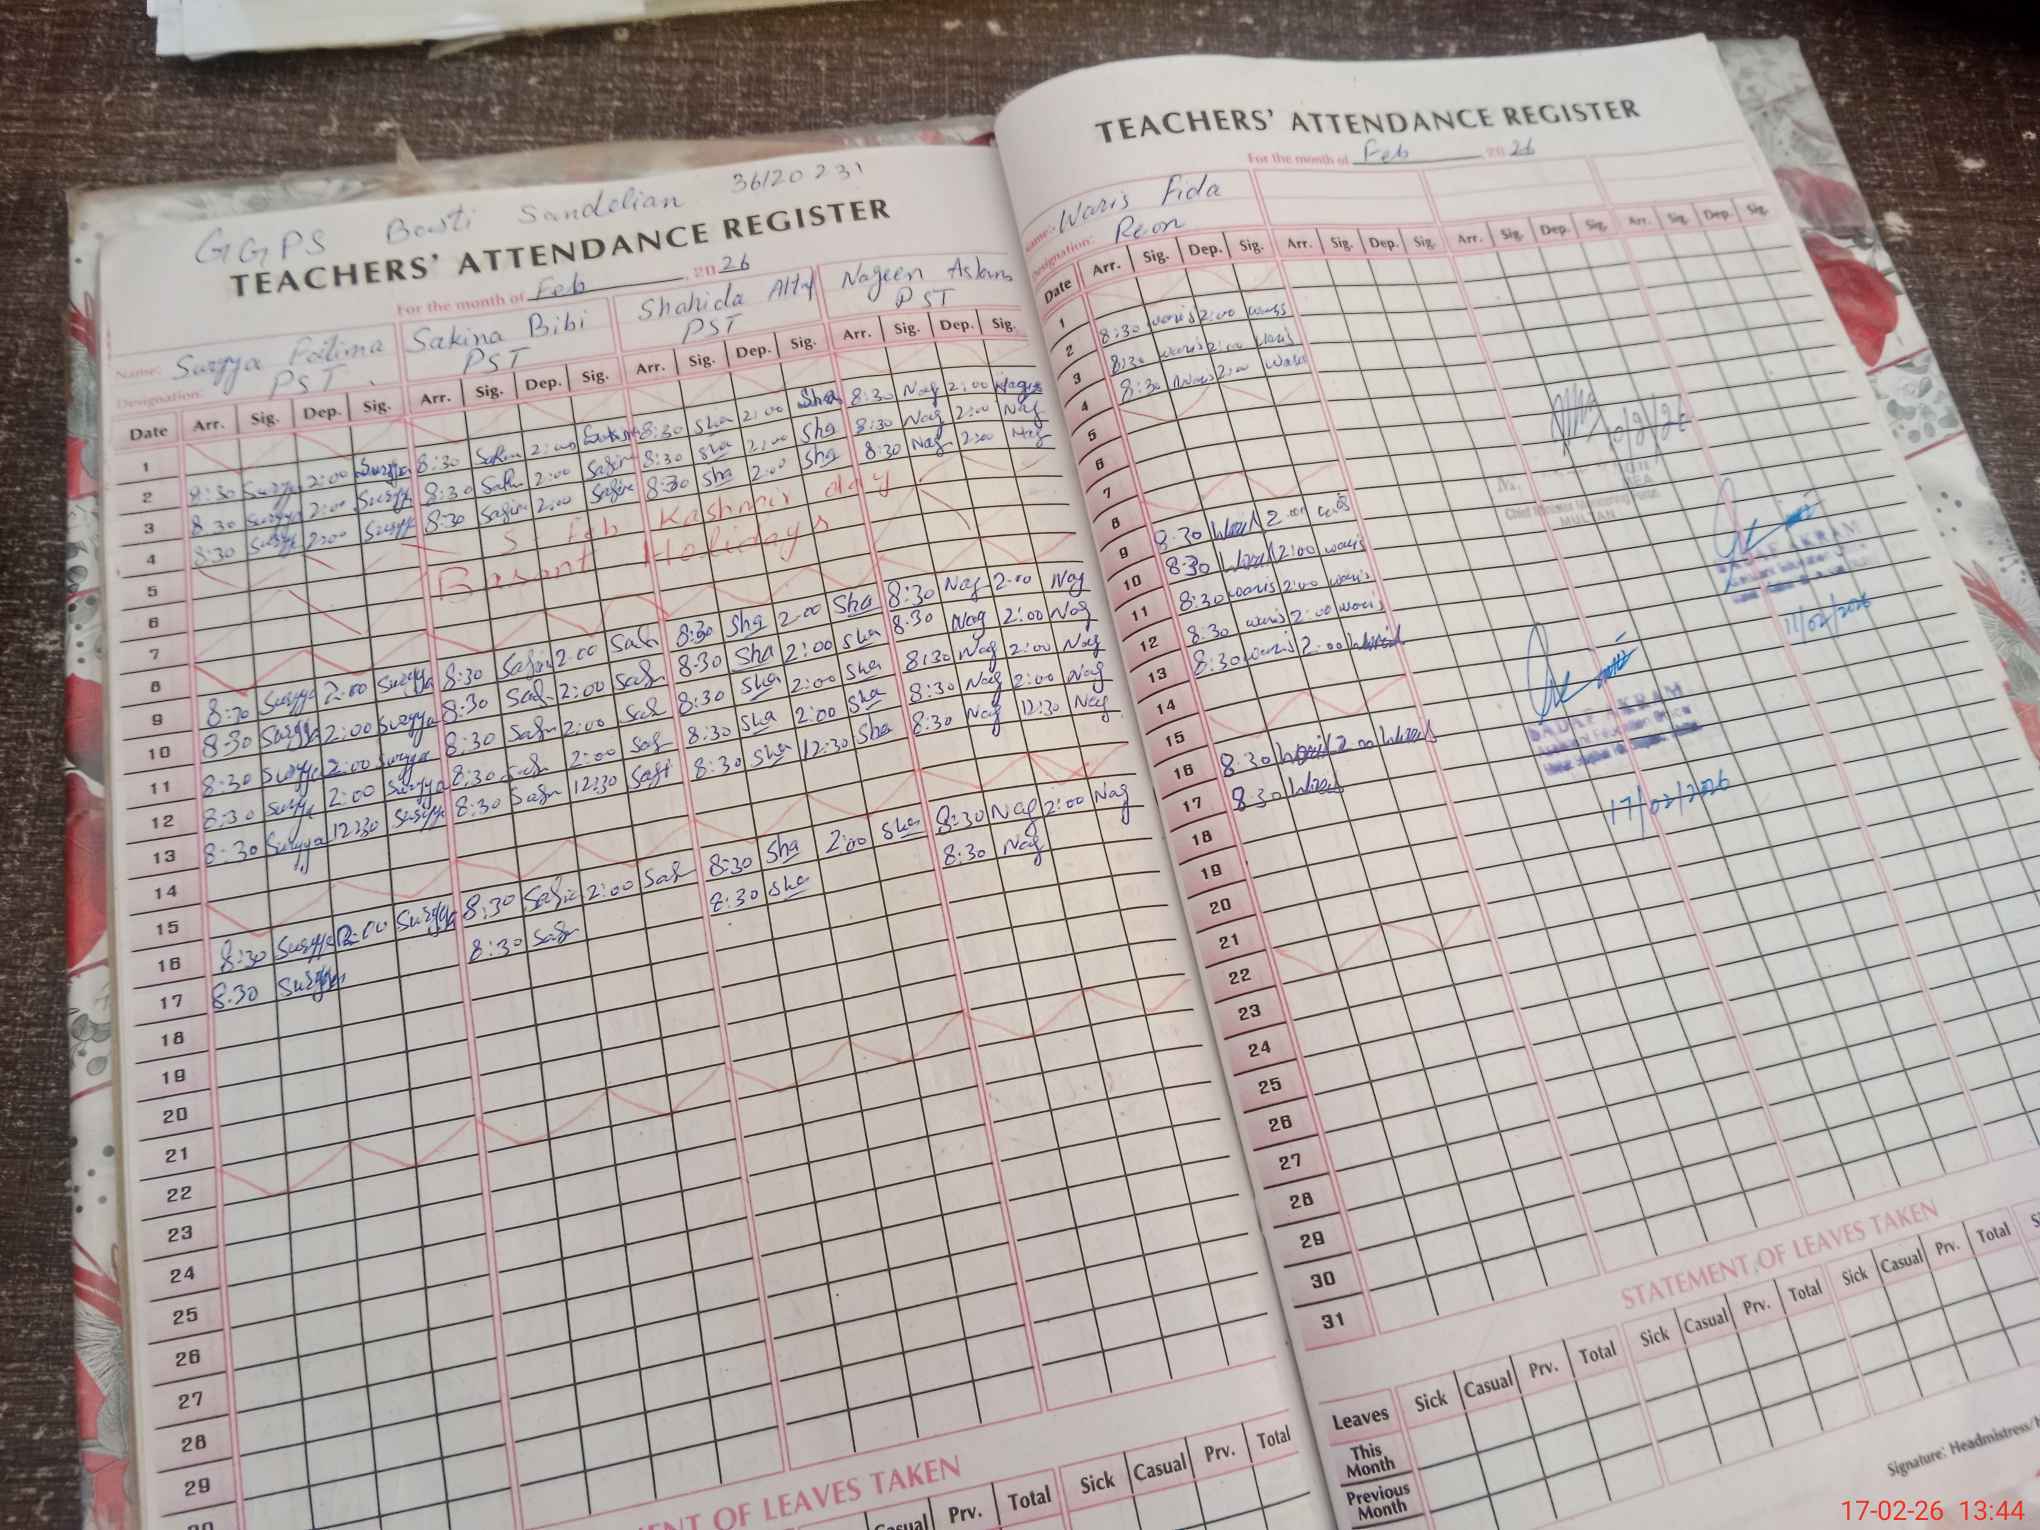 GGPS Basti Sandelian 36120231
TEACHERS' ATTENDANCE REGISTER
For the month of Feb 2026
Name: Suryya Fatima Sakina Bibi Shahida Altaf Nageen Aslam
Designation: PST PST PST PST
Date Arr. Sig. Dep. Sig. Arr. Sig. Dep. Sig. Arr. Sig. Dep. Sig. Arr. Sig. Dep. Sig.
1
2 8:30 Suryya 2:00 Suryya 8:30 Sakin 2:00 8:30 Sha 2:00 Sha 8:30 Nag 2:00
3 8:30 Suryya 2:00 Suryya 8:30 2:00 8:30 Sha 2:00 Sha 8:30 Nag 2:00 Nag
4 8:30 2:00 8:30 2:00 8:30 Sha 2:00 Sha 8:30 Nag 2:00 Nag
5 5 Feb Kashmir day
6 Basant Holidays
7
8
9 8:30 Suryya 2:00 Suryya 8:30 2:00 8:30 Sha 2:00 Sha 8:30 Nag 2:00 Nag
10 8:30 Suryya 2:00 Suryya 8:30 2:00 8:30 Sha 2:00 Sha 8:30 Nag 2:00 Nag
11 8:30 2:00 Suryya 8:30 2:00 8:30 Sha 2:00 Sha 8:30 Nag 2:00 Nag
12 8:30 2:00 Suryya 8:30 2:00 8:30 Sha 2:00 Sha 8:30 Nag 2:00 Nag
13 8:30 Suryya 12:30 8:30 12:30 8:30 Sha 12:30 Sha 8:30 Nag 12:30 Nag
14
15
16 8:30 2:00 Suryya 8:30 2:00 8:30 Sha 2:00 Sha 8:30 Nag 2:00 Nag
17 8:30 8:30 8:30 Sha 8:30 Nag
18
19
20
21
22
23
24
25
26
27
28
29
30
STATEMENT OF LEAVES TAKEN
Casual Prv. Total Sick Casual Prv. Total
TEACHERS' ATTENDANCE REGISTER
For the month of Feb 2026
Name: Waris Fida
Designation:
Date Arr. Sig. Dep. Sig. Arr. Sig. Dep. Sig. Arr. Sig. Dep. Sig. Arr. Sig. Dep. Sig.
1
2 8:30 waris 2:00 waris
3 8:30 waris 2:00 waris
4 8:30 waris 2:00 waris
5
6
7
8
9 8:30 2:00 waris
10 8:30 2:00 waris
11 8:30 waris 2:00 waris
12 8:30 waris 2:00 waris
13 8:30 waris 2:00
14
15
16 8:30 2:00
17 8:30
18
19
20
21
22
23
24
25
26
27
28
29
30
31
MULTAN
11/02/2026
SADAF AKRAM
17/02/2026
STATEMENT OF LEAVES TAKEN
Leaves Sick Casual Prv. Total Sick Casual Prv. Total Sick Casual Prv. Total
This Month
Previous Month
Signature: Headmistress/
17-02-26 13:44